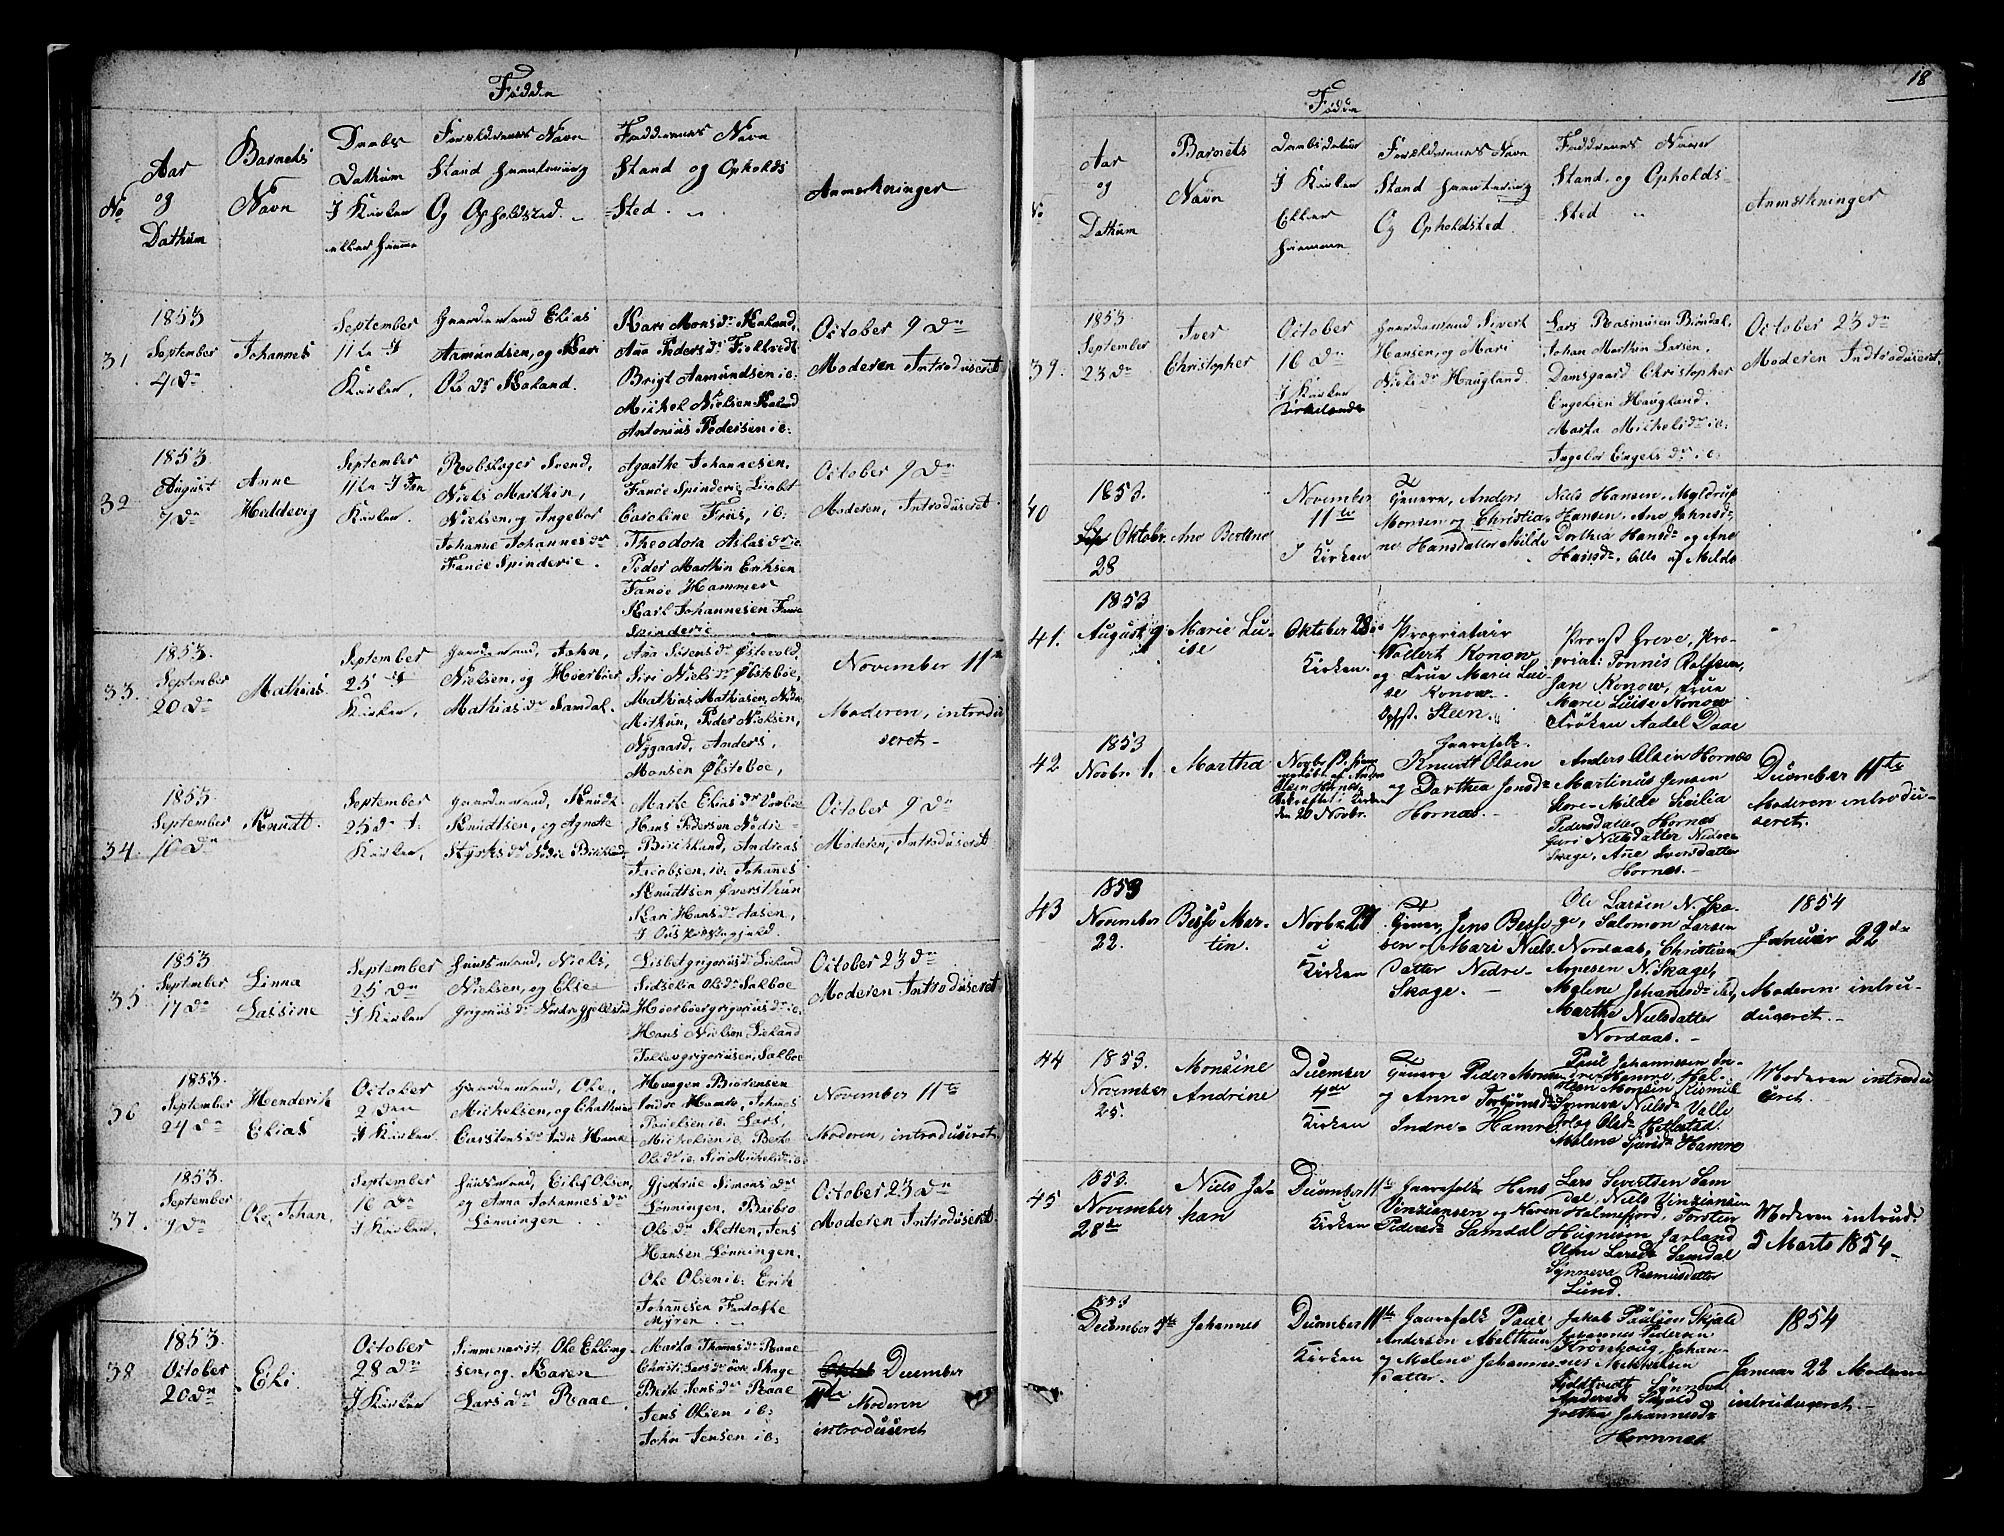 Fødde
No
Aar
og
Dathum
Barnets
Navn
Daabs
Dathum
I Kirken
eller Hiemme
Forældrenes Navn
Stand Haandtering
Og Opholdsted
Faddernes Navn
Stand og Opholds
Sted
Anmerkninger
31
1853
September
4 de
Johannes
September
11te I
Kirken,
Gaardemand Elias
Aamundsen, og Kari
Ols dr Høland.
Kari Monsdr Høland,
Ana Pedersdr
Brigt Aamundsen ib:
Mikkel Nielsen
Antonius Pedersen ib:
October 9 de
Moderen Introduseret
32
1853.
August
7 de
Anne
Heddevig
September
11te I
Kirken.
Rebslager Svend,
Niels Mathin,
Nielsen, og Ingebor
Johanne Johannes dr
Fanøe Spinderie.
Agathe Johannesen,
Fanøe Spinderie,
Caroline Friis, ib:
Theodora
Peder Marthin Eriksen
Fanøe Hammer
Karl Johannesen Fanøe
Spinderie
October 9 de
Moderen, Introduseret.
33.
1853.
September
20 de
Mathias
September
25 I
Kirken,
Gaardemand, John,
Nielsen, og
Mathias dr Samdal.
Ana dr Østevold,
Siri Niels dr Øbsteboe,
Mathias Mathiasen,
Peder Nielsen,
Nygaard, Anders,
Monsen Øbsteboe,
November 11te
Moderen, introdu
seret
34.
1853
September
10 de
Knudt.
September
25 de I
Kirken,
Gaardemand, Knudt
Knudtsen, og Agnette
Styrks dr Nedre Birkland
Marte Elias dr
Hans Pedersen Nedre
Birckland, Andreas
Jacobsen, ib: Johanes
Knudtsen Øversthun
Kari Hans dr Aasen,
October 9 de
Moderen, Introduseret
35
1853
September
17 de
Linna
Lassine
September
25 de
I Kirken
Huusmand, Niels,
Nielsen, og Else
Grigorius dr Nordre
Lisbet grigoriusdr Lieland
Ols dr Salboe
grigorius dr ib:
Hans Nielsen Lieland
grigoriusen, Salboe
October 23 de
Moderen Introduseret
36
1853.
September
24 de
Henderik
Elias
October
2 den
I Kirken.
Gaardemand, Ole,
Mickelsen, og
Carstens dr Indre Hamre
Haagen Biörensen
Indre Hamre, Johanes
ib: Lars,
Mickelsen ib: Berte
Ols dr ib: Siri Mickels dr ib:
November 11te
Moderen, introduseret
37.
1853.
September
9 de
Ole, Johan,
September
16 de
I Kirken,
Huusmand, Eilef Olsen,
og Anna Johannes dr
Lønningen
Gjertrue Simons dr
Lønningen,
Ols dr Sletten, Jens
Hansen Lønningen,
Ole Olsen ib: Erik
Johannesen Fantofte
Myren.
October 23 de
Moderen Introduseret.
38
1853.
October
20 de
Eli.
October
28 de
I Kirken
Seminarist, Ole Elling
sen, og Karen
Lars dr Raae.
Marta dr Raae
Christi Lars dr Skage
Berit Jens dr Raae
Jens Olsen ib:
John Jensen ib:
December
11te Moderen
introduseret
18
Fødde
No
Aar
og
Dathum
Barnets
Navn
Daabsdatum
I Kirken
Eller
Hiemme
Forældrenes Navn
Stand Haantering
Og Opholdsted.
Faddrenes Navne
Stand, og Opholds-
Sted
Anmerkninger
39.
1853
September
23 de
Iver
Christopher
October
16 de
I Kirken
Gaardemand Sivert
Hansen, og Mari
Niels dr Haugland.
Lars Rasmusen Birndal,
Johan Marthin Larsen,
Damsgaard Christopher
Engelsen Haugland.
Marta Mikkels dr ib:
Ingebor Engels dr ib.
October 23 de
Moderen Introduseret.
40
1853.
Oktobr
28
Ane Bertine
November
11te
I Kirken
Anders
Monsen og Christia-
ne Hansdatter Milde
Niels Hansen, Myldrup
Hansen, Ane Johnsd:
Dorthia Hansdr og Ane
Hansdr, alle af Milde
41.
1853
August 9
Marie Lu-
ise
Oktober 28
Kirken.
Proprietair
Wollert Konow
og Frue Marie Lui-
se Konow
Opst. Steen.
Provst Greve, Pro-
priet: Tønnis Rolfsen,
Jan Konow, Frue
Marie Luise Konow
Frøken Aadel Daae
42
1853
Novbr. 1.
Martha
Novbr
Olsen Hornes
Bekræftet i Kirken
den 20 Novbr.
Gaarefolk
Knudt Olsen
og Dorthea Jonsd:
Hornæs.
Anders Olsen Hornes
Martinus Jensen
Store-Milde Sicilia
Pedersdatter Hornæs
Guri Nielsdatter Nedre-
Skage, Ane Iversdatter
Hornæs.
December 11te
Moderen introdu-
seret.
43
1853
November
22.
Besse Mar-
tin.
Novbr 27
i
Kirken
Jens Besse
sen og Mari Niels
datter Nedre-
Skage.
Ole Larsen N. Ska-
ge, Salomon Larsen
Nordaas, Christian
Arnesen N. Skage,
Malene Johansdr ibd,
Marthe Nielsdatter
Nordaas.
1854
Januar 22de
Moderen intru-
duceret.
44
1853.
November
25.
Monsine
Andrine
December
4de
i
Kirken
Peder Monsen
og Anne Torbjørnsdr
Indre-Hamre
Paul Johannessen In-
dre Hamre,
Monsen
Synneva Nielsdr Valle
Olsdr
Malene Sjursdr Hamre
Moderen introdu
ceret.
45
1853.
November
28de
Niels Jo-
han
December 11te
i
Kirken
Gaarefolk Hans
Vinziansen og Karen
Pedersdr Samdal
Lars Severtsen Sam
dal, Niels Vinziansen
Halmefjord, Torsten
Larsdr Samdal
Synneva Rasmusdatter
Lund.
Moderen introd.
5 Marts 1854
1853
December 3de
Johannes
December 11te
i
Kirken
Gaarefolk Paul
Andersen Aalthun
og Malene Johannes
datter.
Jakob Paulsen Skjold
Johannes Pedersen
Krosshoug, Johan-
nes Mikkelsen
Fjeldtvedt, Synneva
Andersdr Skjold
Johannesdr
Hornnæs
1854
Januar 22 Moderen
introduceret